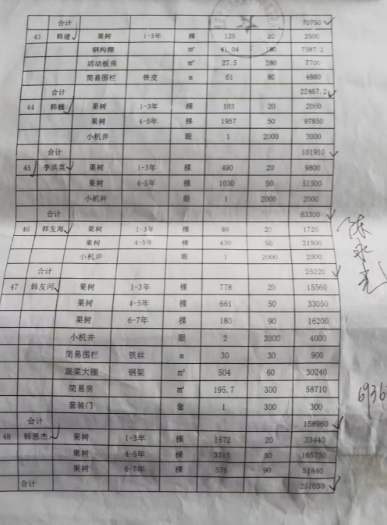 合计 70750
43 韩建 果树 1-3年 棵 125 20 2500
钢构棚 ㎡ 41.04 180 7387.2
活动板房 ㎡ 27.5 280 7700
简易围栏 铁皮 m 61 80 4880
合计 22467.2
44 韩 果树 1-3年 棵 103 20 2060
果树 4-5年 棵 1957 50 97850
小机井 眼 1 2000 2000
合计 101910
45 李洪英 果树 1-3年 棵 490 20 9800
果树 4-5年 棵 1030 50 51500
小机井 眼 1 2000 2000
合计 63300
46 韩友海 果树 1-3年 棵 86 20 1720
果树 4-5年 棵 430 50 21500
小机井 眼 1 2000 2000
合计 25220
47 韩友河 果树 1-3年 棵 778 20 15560
果树 4-5年 棵 661 50 33050
果树 6-7年 棵 180 90 16200
小机井 眼 2 2000 4000
简易围栏 铁丝 m 30 30 900
蔬菜大棚 钢架 ㎡ 504 60 30240
简易房 ㎡ 195.7 300 58710
套装门 套 1 300 300
合计 158960
48 韩惠杰 果树 1-3年 棵 1672 20 33440
果树 4-5年 棵 3315 50 165750
果树 6-7年 棵 576 90 51840
合计 251030
陈永亮
6936